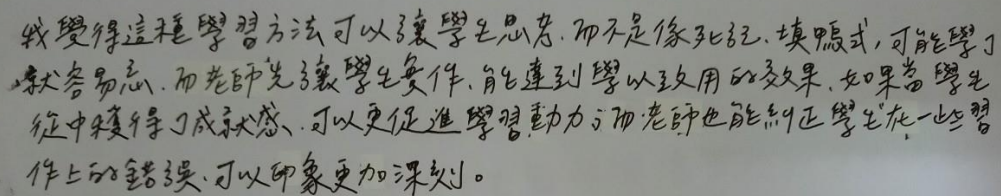 我覺得這種學習方法可以讓學生思考.而不是像死記、填鴨式,可能學了
就容易忘.而老師先讓學生實作.能達到學以致用的效果.如果當學生
從中獲得了成就感、可以更促進學習動力;而老師也能糾正學生在一些習
作上的錯誤.可以印象更加深刻。